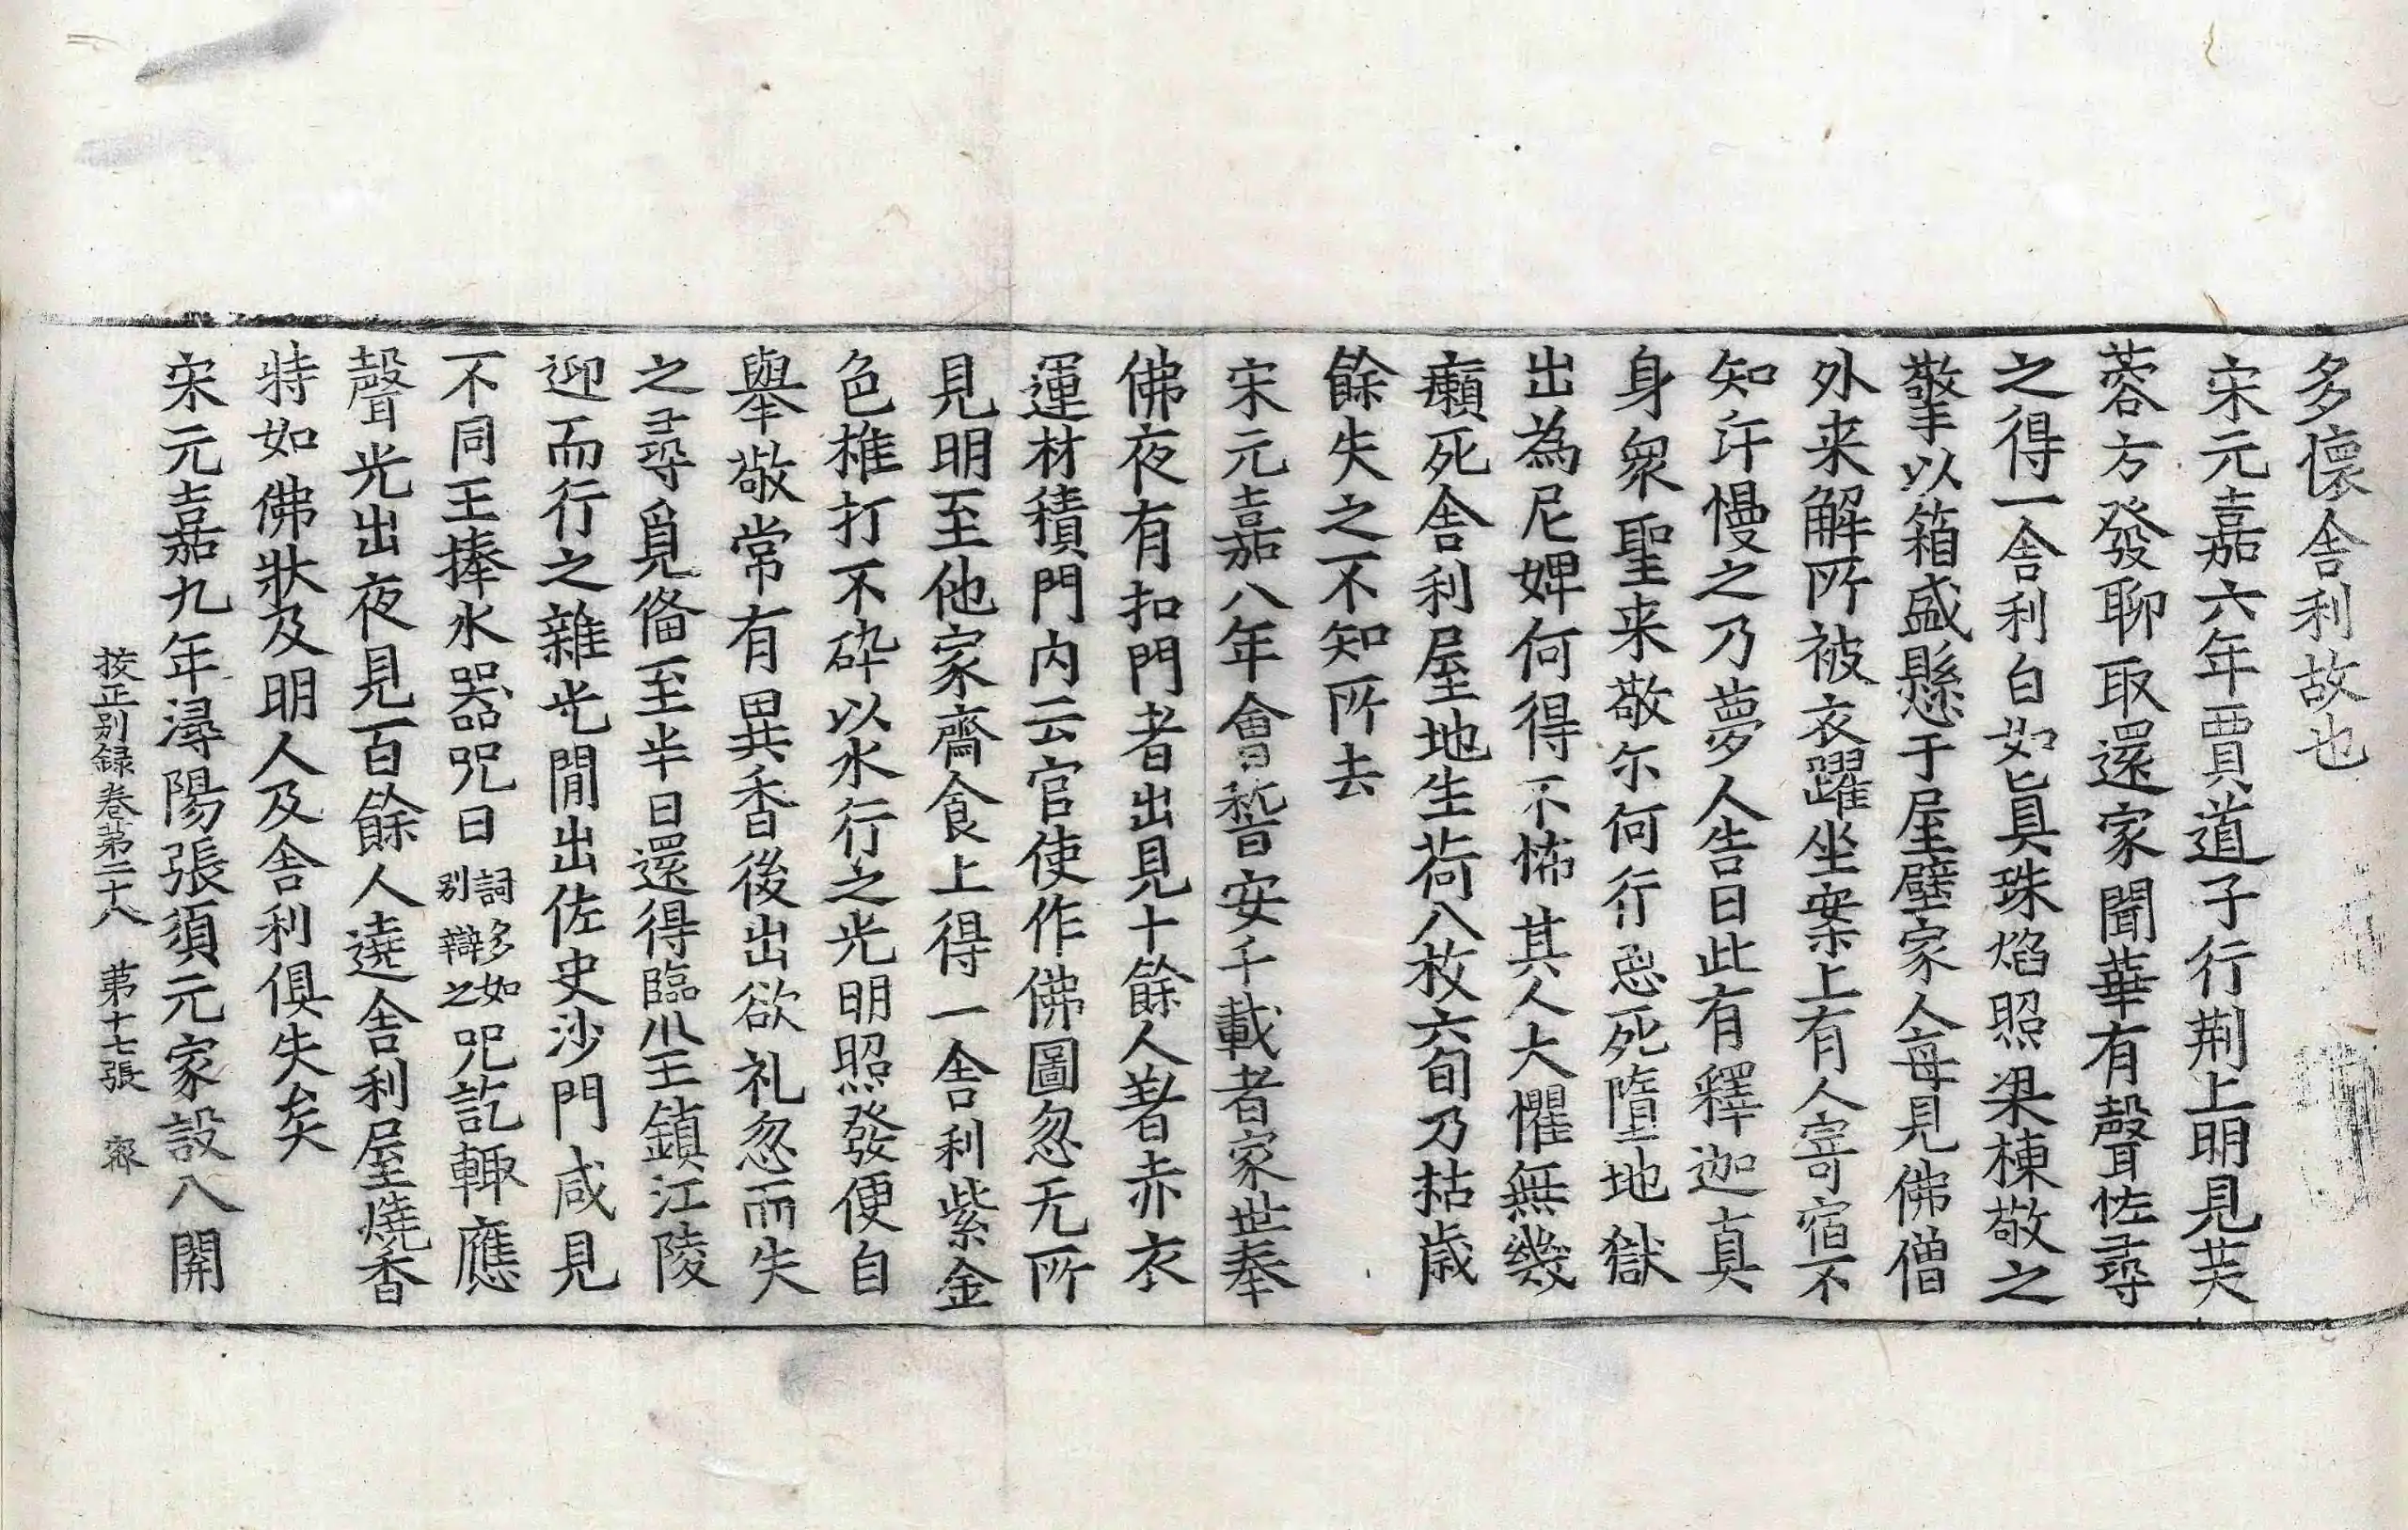 多懷舎利故也
宋元嘉六年賈道子行荆上明見芙
蓉方發聊取還家聞華有聲怪尋
之得一舎利白如真珠焰照梁棟敬之
擎以箱盛懸于屋壁家人每見佛僧
外来解所被衣躍坐案上有人寄宿不
知汙慢之乃夢人告曰此有釋迦真
身衆聖来敬尔何行惡死墮地獄
出為尼婢何得不怖其人大懼無幾
癩死舎利屋地生荷八枚六旬乃枯歲
餘失之不知所去
宋元嘉八年會稽安千載者家世奉
佛夜有扣門者出見十餘人著赤衣
運材積門内云官使作佛圖忽无所
見明至他家齋食上得一舎利紫金
色椎打不碎以水行之光明照發便自
舉敬常有異香後出欲礼忽而失
之尋覓備至半日還得臨川王鎮江陵
迎而行之雜光間出佐史沙門咸見
不同王捧水器呪曰詞多如別辯之呪訖輙應
聲光出夜見百餘人遶舎利屋燒香
特如佛狀及明人及舎利俱失矣
宋元嘉九年潯陽張須元家設八關
挍正别録卷第二十八 第十七張